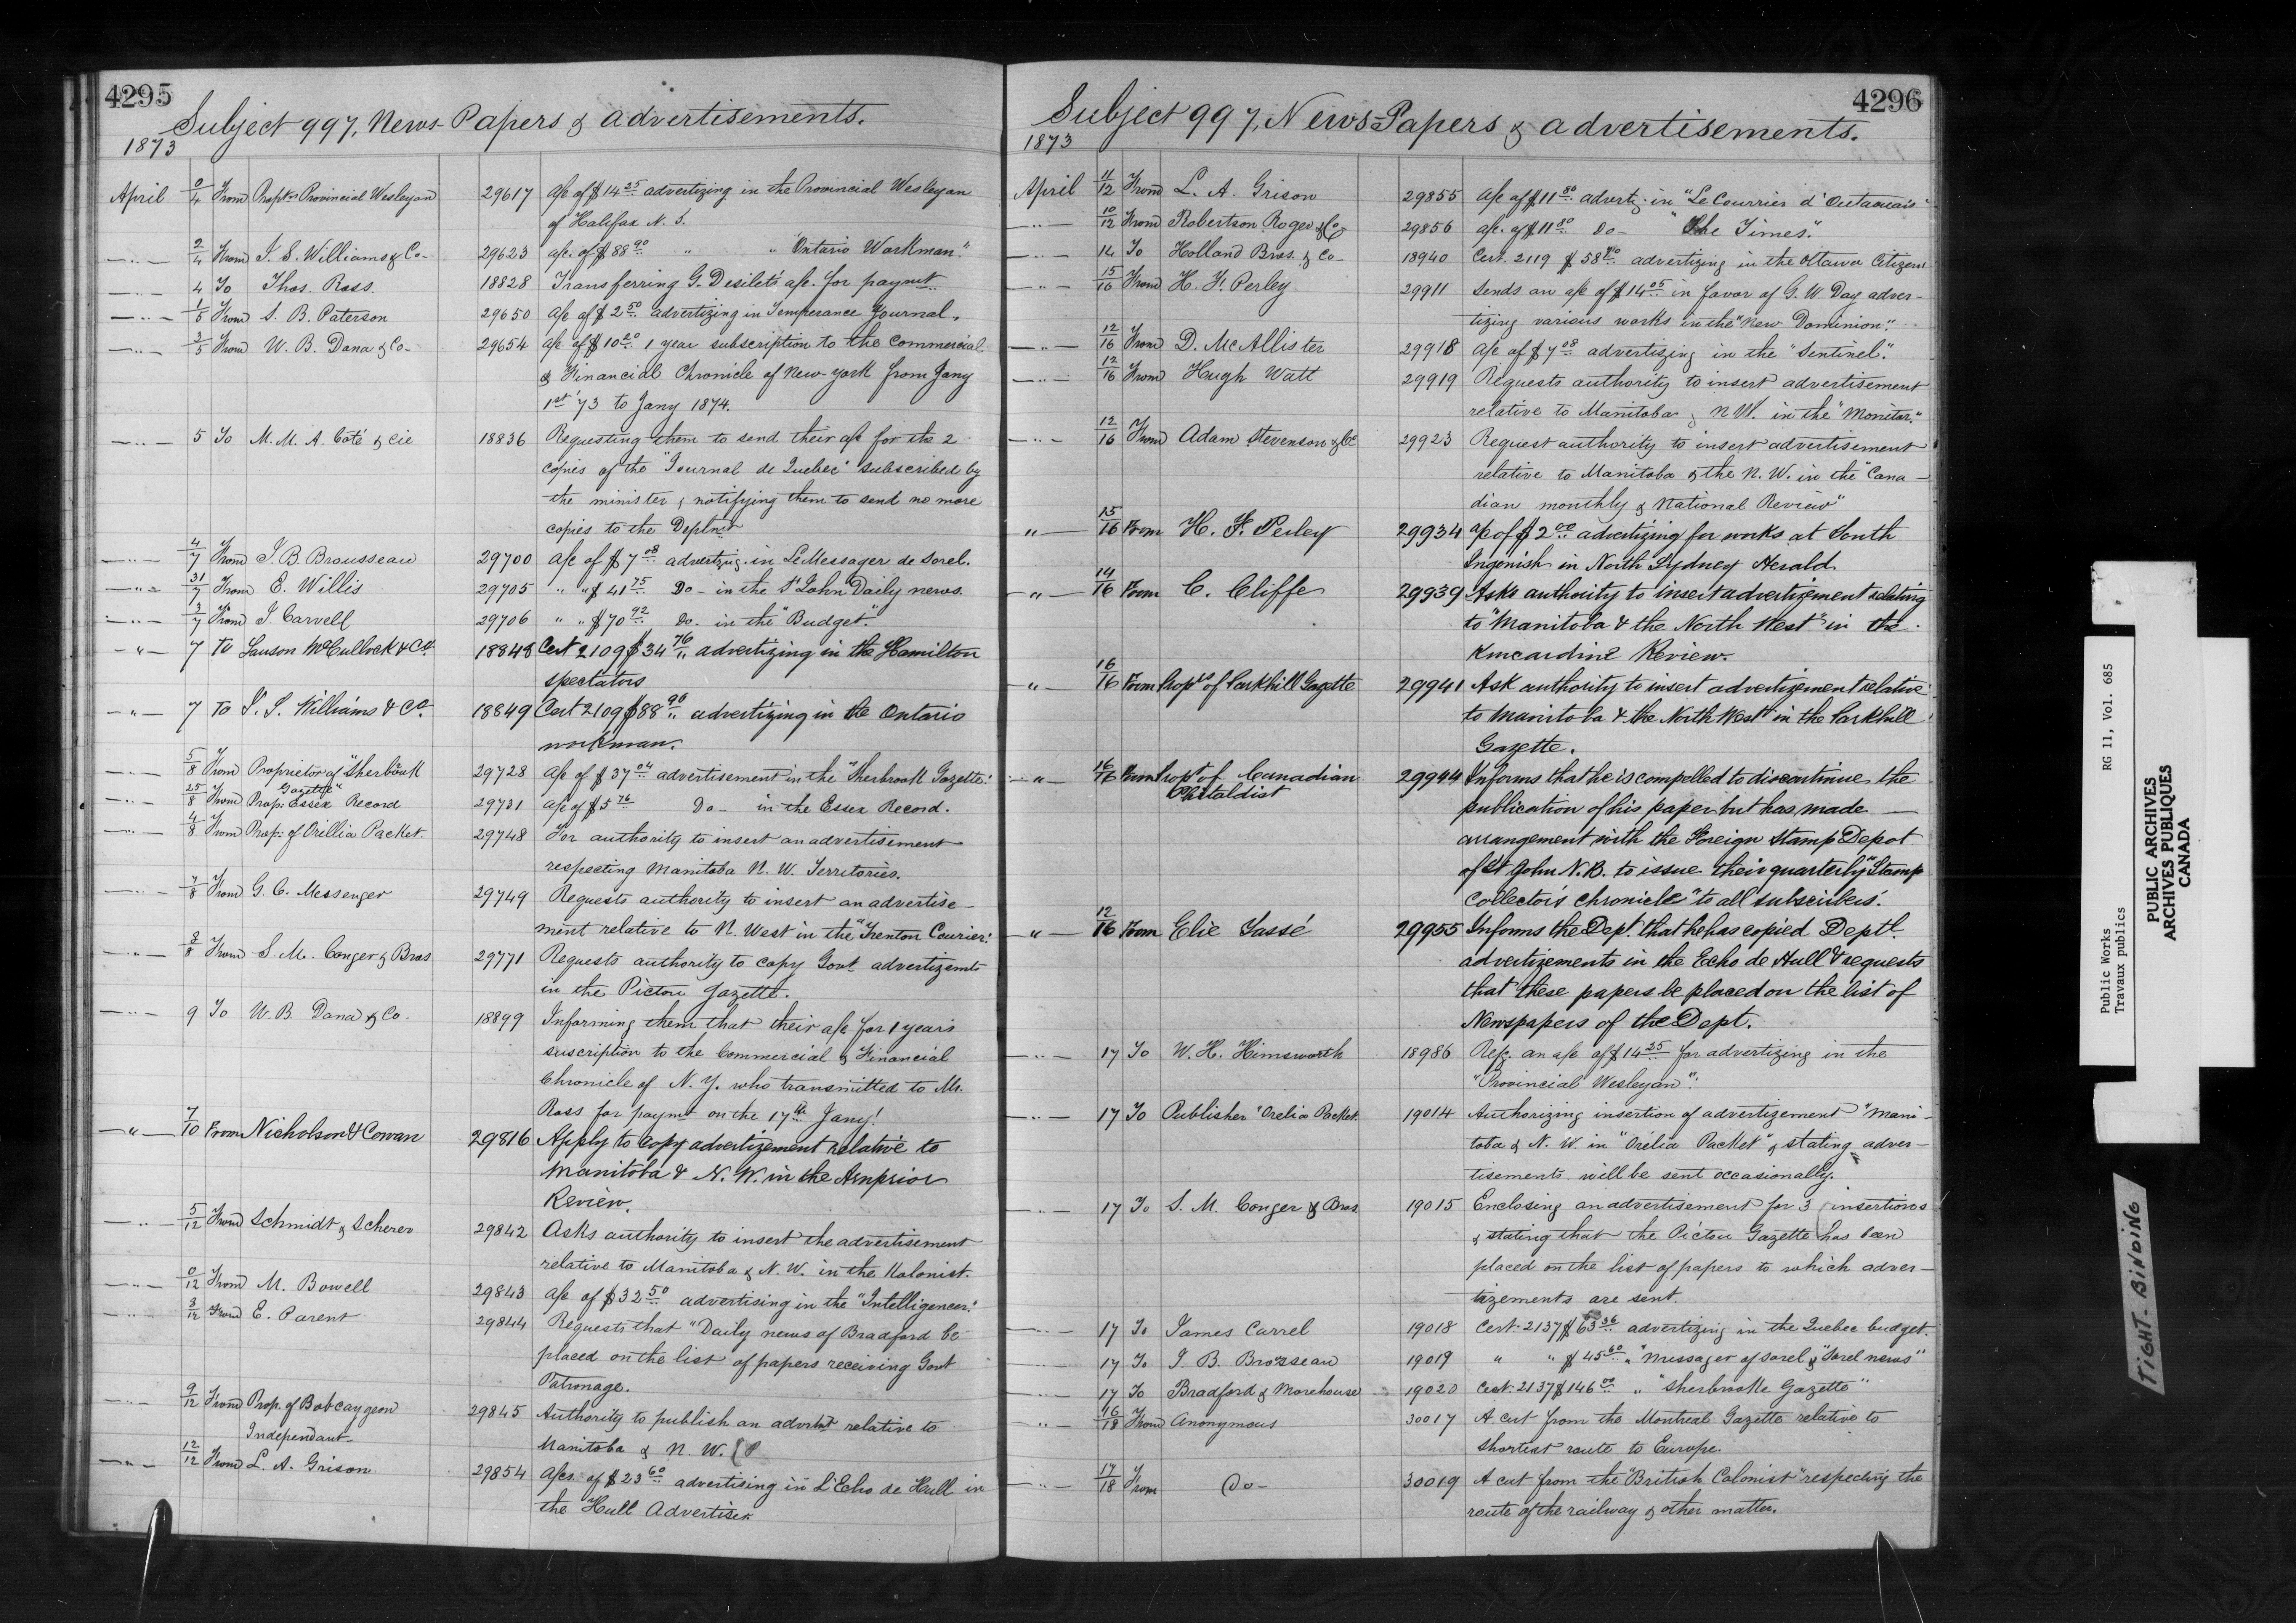 4295
Subject 997, News-Papers & advertisements.
1873
April 0/4 From Proptrs Provincial Wesleyan 29617 a/c of $14 25 advertizing in the Provincial Wesleyan
of Halifax N. S.
2/4 From J. S. Williams & Co- 29623 a/c. of $88 90 " " "Ontario Workman".
4 To Thos. Ross 18828 Transferring G. Desilets a/c. for paymt.
1/5 From S. B. Paterson 29650 a/c of $2 50 advertizing in Temperance Journal.
3/5 From W. B. Dana & Co- 29654 a/c of $10 20 1 year subscription to the Commercial
& Financial Chronicle of New-York from Jany
1st '73 to Jany 1874.
5 To M. M. A. Coté & Cie 18836 Requesting them to send their a/c for the 2
copies of the "Journal de Quebec" subscribed by
the minister & notifying them to send no more
copies to the Deptmt
4/7 From J. B. Brousseau 29700 a/c of $7 08 advertizg. in Le Messager de Sorel.
31/7 From E. Willis 29705 " " $41 75 Do- in the St John Daily news.
3/7 From J. Carvell 29706 " " $70 92 Do. in the "Budget"
7 To Lauson McCullock & Co. 18848 Cert 2109 $34 76 advertizing in the Hamilton
spectators
7 To J. S. Williams & Co. 18849 Cert 2109 $88 90 advertizing in the Ontario
workman.
5/8 From Proprietor of "Sherbrook 29728 a/c of $37 04 advertisement in the "Sherbrook Gazette".
Gazette"
25/8 From Prop: Essex Record 29731 a/c of $5 76 Do- in the Essex Record.
4/8 From Prop: of Orillia Packet. 29748 For authority to insert an advertisement
respecting Manitoba N. W. Territories.
7/8 From G. C. Messenger 29749 Requests authority to insert an advertise-
ment relative to N. West in the "Trenton Courier".
3/8 From S. M. Conger & Bros 29771 Requests authority to copy Govt advertizemts
in the Picton Gazette.
9 To W. B. Dana & Co- 18899 Informing them that their a/c for 1 year's
suscription to the Commercial & Financial
Chronicle of N. Y. who transmitted to Mr.
Ross for paymt on the 17th Jany!
7/10 From Nicholson & Cowan 29816 Apply to copy advertizement relative to
Manitoba & N. W. in the Arnprior
Review.
5/12 From Schmidt & Scherer 29842 Asks authority to insert the advertisement
relative to Manitoba & N. W. in the Kolonist.
0/12 From M. Bowell 29843 a/c of $32 50 advertising in the "Intelligencer".
3/12 From E. Parent 29844 Requests that "Daily news of Bradford be
placed on the list of papers receiving Govt
Patronage.
9/12 From Prop. of Bobcaygeon 29845 Authority to publish an advtmt relative to
Independant- Manitoba & N. W.
12/12 From L. A. Grison 29854 a/cs. of $23 60 advertising in L'Echo de Hull in
the Hull Advertiser.
4296
Subject 997, News-Papers & advertisements.
1873
April 11/12 From L. A. Grison 29855 a/c of $11 80 advertiz. in "Le Courrier d'Outaouais"
10/12 From Robertson Roger & Co 29856 a/c. of $11 80 Do- "The Times".
14 To Holland Bros. & Co- 18940 Cert. 2119 $58 80 advertizing in the Ottawa Citizen
15/16 From H. F. Perley 29911 Sends an a/c of $14 05 in favor of G. W. Day adver-
tizing various works in the "New Dominion".
12/16 From D. McAllister 29918 a/c of $7 08 advertising in the "Sentinel".
12/16 From Hugh Watt 29919 Requests authority to insert advertisement
relative to Manitoba & N W. in the "Monitor."
12/16 From Adam Stevenson & Co 29923 Request authority to insert advertisement
relative to Manitoba & the N. W. in the "Cana-
dian monthly & National Review"
15/16 From H. F. Perley 29934 a/c of $2 00 advertizing for works at South
Ingonish in North Sydney Herald.
14/16 From C. Cliffe 29939 Asks authority to insert advertizement relating
to "Manitoba & the North West" in the
Kincardine Review.
16/16 From Proptrs of Parkhill Gazette 29941 Ask authority to insert advertizement relative
to Manitoba & the North West in the Parkhill
Gazette.
16/16 From Propt. of Canadian 29944 Informs that he is compelled to discontinue the
publication of his paper but has made
arrangement with the Foreign Stamp Depot
of St John N. B. to issue their quarterly "Stamp
Collector's Chronicle" to all subscribers.
12/16 From Elie Tassé 29955 Informs the Dept. that he has copied Deptl.
advertizements in the Echo de Hull & requests
that these papers be placed on the list of
Newspapers of the Dept.
17 To W. H. Himsworth 18986 Refg. an a/c of $14 25 for advertizing in the
"Provincial Wesleyan".
17 To Publisher "Orelia Packet. 19014 Authorizing insertion of advertizement "Mani-
toba & N. W. in "Orelia Packet" & stating adver-
tisements will be sent occasionally.
17 To S. M. Conger & Bros 19015 Enclosing an advertisement for 3 insertions
& stating that the Picton Gazette has been
placed on the list of papers to which adver-
tizements are sent.
17 To James Carrel 19018 Cert: 2137 $63 36 advertizing in the Quebec budget.
17 To J. B. Brosseau 19019 " " $45 60 " "Messager of Sorel & "Sorel news"
17 To Bradford & Morehouse 19020 Cert: 2137 $146 00 " "Sherbrooke Gazette"
16/18 From Anonymous 30017 A cut from the Montreal Gazette relative to
shortest route to Europe.
17/18 From Do- 30019 A cut from the "British Colonist" respecting the
route of the railway & other matter.
Public Works RG 11, Vol. 685
Travaux publics
PUBLIC ARCHIVES
ARCHIVES PUBLIQUES
CANADA
TIGHT-BINDING